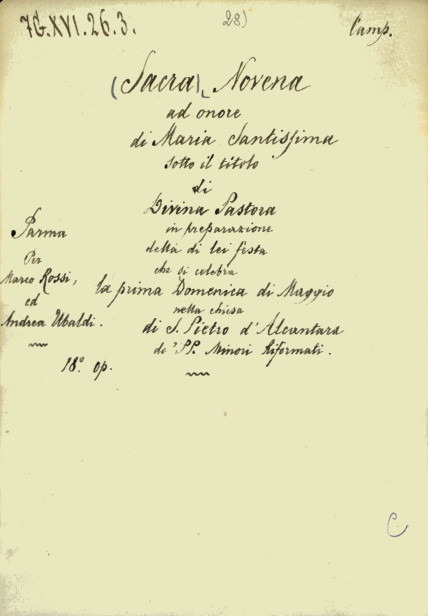 7G.XVI.26.3.
28)
Camp.
(Sacra) Novena
ad onore
di Maria Santissima
sotto il titolo
di
Divina Pastora
in preparazione
della di lei festa
che si celebra
la prima Domenica di Maggio
nella chiesa
di S. Pietro d'Alcantara
de' PP. Minori Riformati.
Parma
Per
Marco Rossi,
ed
Andrea Ubaldi.
18.° op.
C